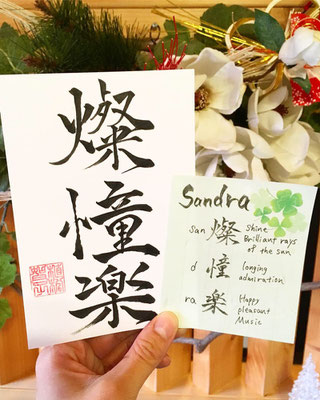 燦
憧
楽
Sandra
San 燦 Shine
Brilliant rays
of the sun
d 憧 longing
admiration
ra 楽 Happy
pleasant
Music